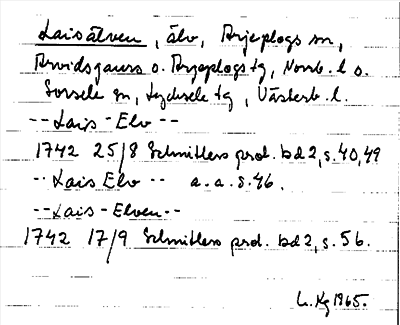 Laisälven, älv, Arjeplogs sn,
Arvidsjaurs o. Arjeplogs tg, Norrb. l o.
Sorsele sn, Lycksele tg, Västerb. l.
-- Lais-Elv --
1742 25/8 Schnitlers prot. bd 2, s. 40, 49
-- Lais Elv -- a.a. s. 46.
-- Lais-Elven --
1742 17/9 Schnitlers prot. bd 2, s. 56.
L. Kg 1965.